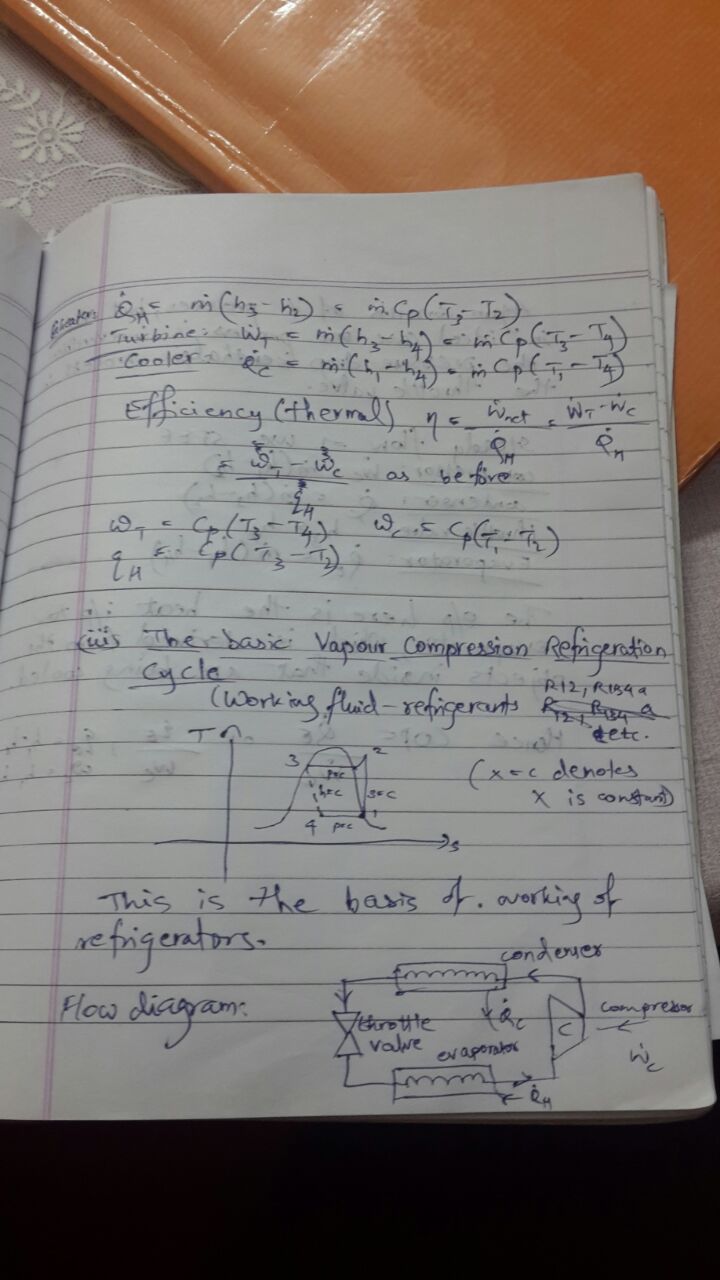 Heater: Q̇_H = ṁ(h₃ - h₂) = ṁ Cp(T₃ - T₂)
Turbine: Ẇ_T = ṁ(h₃ - h₄) = ṁ Cp(T₃ - T₄)
Cooler: Q̇_C = ṁ(h₁ - h₄) = ṁ Cp(T₁ - T₄)
Efficiency (thermal) η = Ẇnet/Q̇_H = (Ẇ_T - Ẇ_C)/Q̇_H
= (w_T - w_C)/q_H as before
w_T = Cp(T₃ - T₄) w_C = Cp(T₁ - T₂)
q_H = Cp(T₃ - T₂)
(iii) The basic Vapour Compression Refrigeration
Cycle
(Working fluid - refrigerants R12, R134a
etc.
T
3
2
p=c
h=c
s=c
4
p=c
1
s
(x=c denotes
x is constant)
This is the basis of working of
refrigerators.
Flow diagram:
condenser
Q̇_C
throttle
valve
C
compressor
Ẇ_C
evaporator
Q̇_H